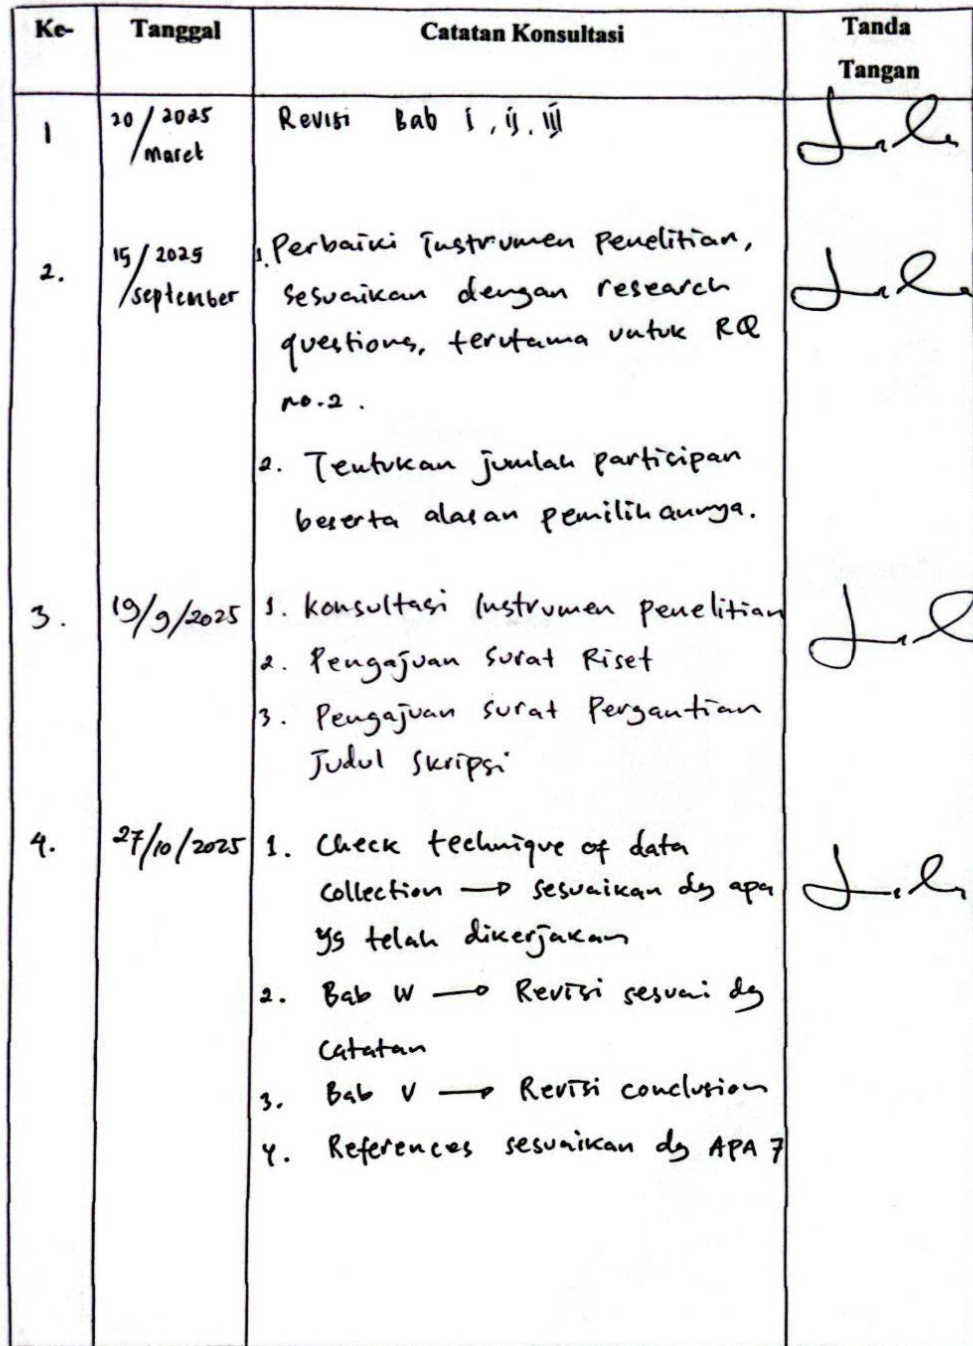 Ke- Tanggal Catatan Konsultasi Tanda
Tangan
1 20/2025 Revisi Bab I, II, III
Maret
2. 15/2025 1. Perbaiki Instrumen Penelitian,
/September sesuaikan dengan research
questions, terutama untuk RQ
no.2.
2. Tentukan jumlah partisipan
beserta alasan pemilihannya.
3. 19/9/2025 1. Konsultasi Instrumen penelitian
2. Pengajuan Surat Riset
3. Pengajuan Surat Pergantian
Judul Skripsi
4. 27/10/2025 1. Check technique of data
collection → sesuaikan dg apa
yg telah dikerjakan
2. Bab IV → Revisi sesuai dg
catatan
3. Bab V → Revisi conclusion
4. References sesuaikan dg APA 7